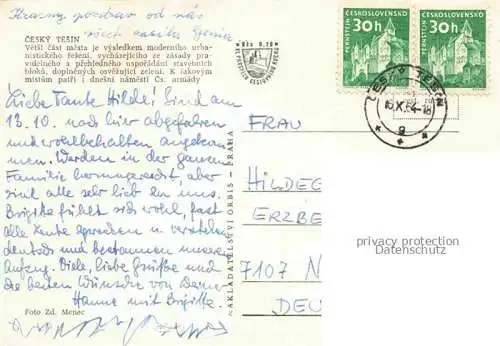 Krásný pozdrav od nás
všech
ČESKÝ TEŠÍN
Větší část města je výsledkem moderního urba-
nistického řešení, vycházejícího ze zásady pra-
videlného a přehledného uspořádání stavebních
bloků, doplněných osvěžující zelení. K takovým
místům patří i dnešní náměstí Čs. armády
Kčs 0,10
Liebe Tante Hilde! Sind am
13.10. nach hier abgefahren
und wohlbehalten angekom-
men. Werden in der ganzen
Familie herumgereicht, aber
sind alle sehr lieb zu uns.
Brigitte fühlt sich wohl, fast
alle Leute sprechen u. verstehen
deutsch und bestaunen unseren
Anfang. Viele, liebe Grüße und
die besten Wünsche von Deiner
Hanne mit Brigitte.
Foto Zd. Menec
NAKLADATELSTVÍ ORBIS - PRAHA
ČESKOSLOVENSKO
PERNŠTEJN
30h
ČESKOSLOVENSKO
PERNŠTEJN
30h
ČESKÝ TĚŠÍN
FRAU
HILDEG
ERZBE
7107 N
DEU
privacy protection
Datenschutz